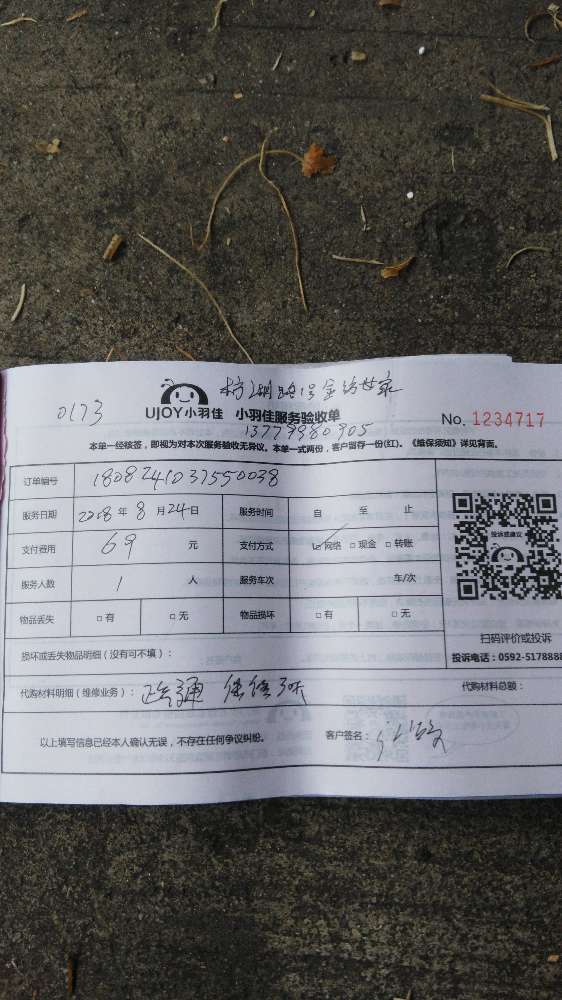 0173
UJOY小羽佳 小羽佳服务验收单
13779980905
No. 1234717
本单一经核签，即视为对本次服务验收无异议。本单一式两份，客户留存一份(红)。《维保须知》详见背面。
订单编号 1808241037550038
服务日期 2018 年 8 月 24 日 服务时间 自 至 止
支付费用 69 元 支付方式 ☑网络 □现金 □转账
服务人数 1 人 服务车次 车/次
物品丢失 □有 □无 物品损坏 □有 □无
投诉或建议
扫码评价或投诉
投诉电话：0592-517888
损坏或丢失物品明细（没有可不填）：
代购材料明细（维修业务）： 疏通 代购材料总额：
以上填写信息已经本人确认无误，不存在任何争议纠纷。 客户签名：